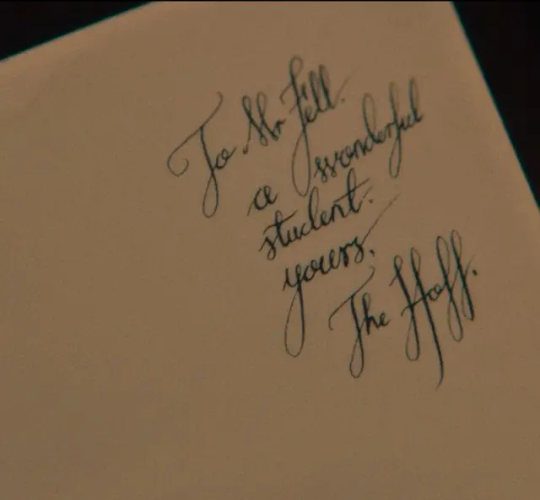 To Mr Fell.
a wonderful
student.
yours,
The Hoff.